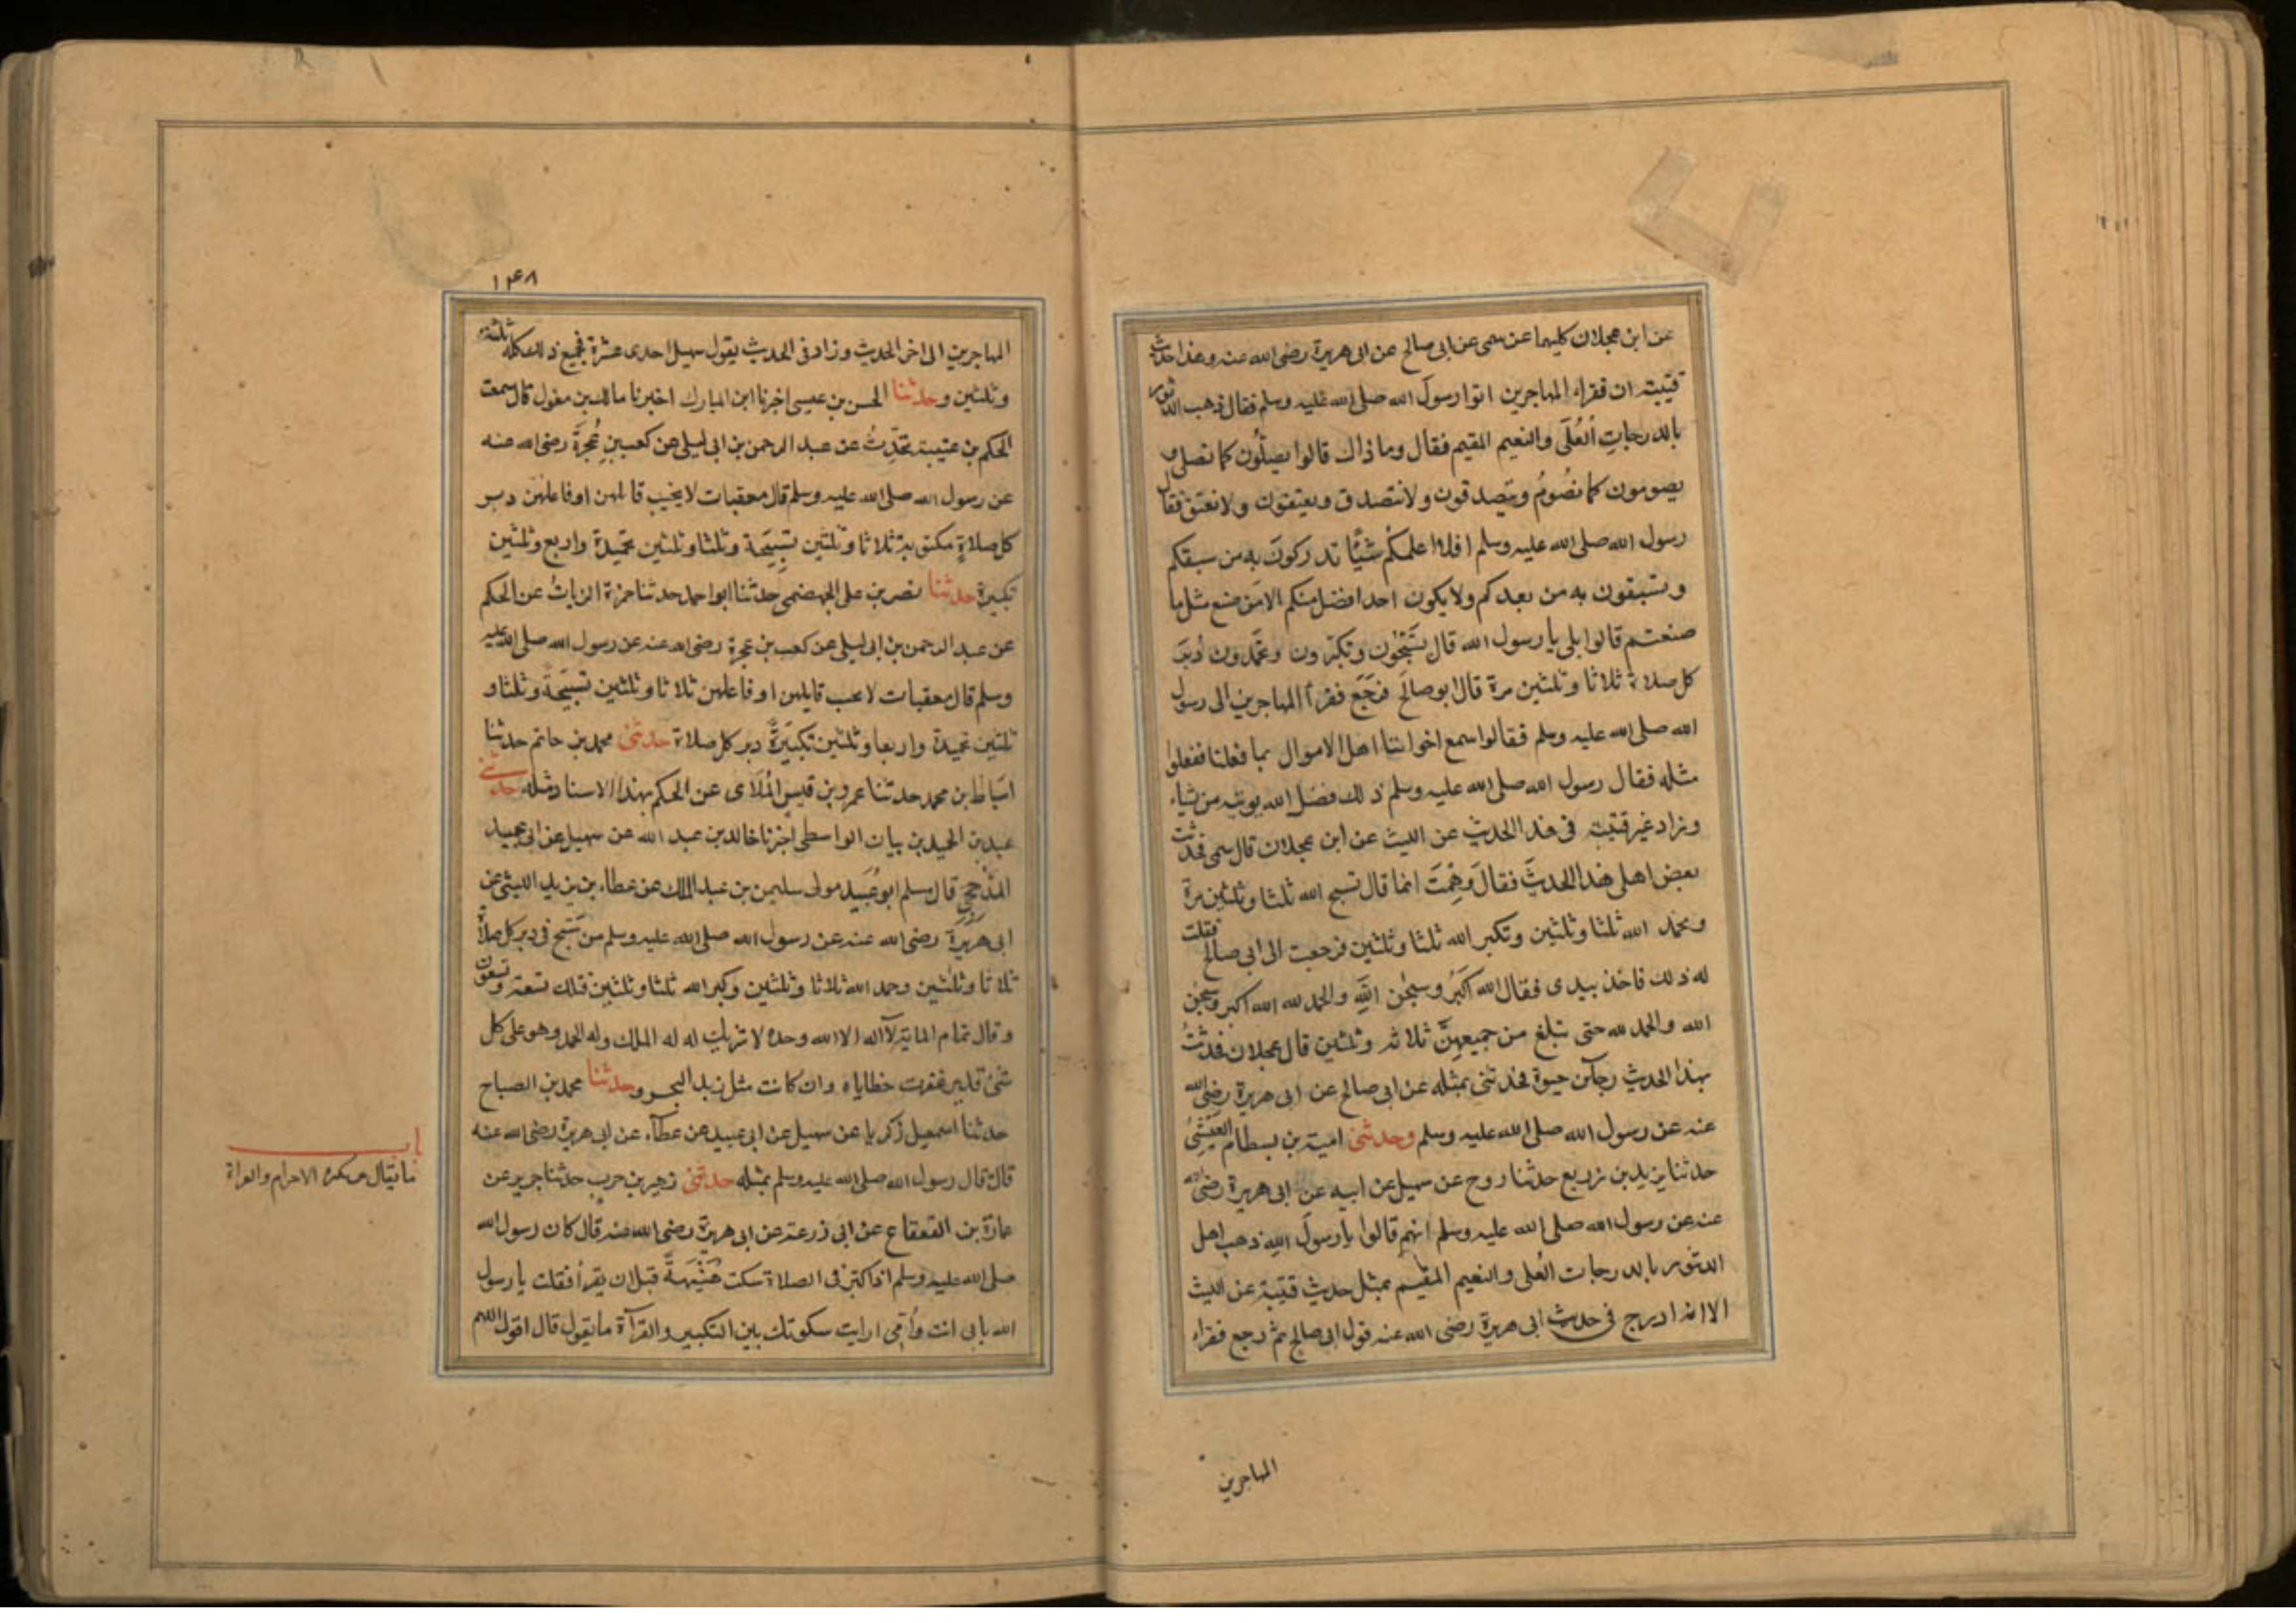 عن ابن عجلان كليهما عن سمى عن ابى صالح عن ابى هريرة رضى الله عنه وهذا حديث
قتيبة ان فقراء المهاجرين اتوا رسول الله صلى الله عليه وسلم فقال ذهب الدثور
بالدرجات العُلَى والنعيم المقيم فقال وما ذاك قالوا يصلُّون كما نصلى و
يصومون كما نصُومُ ويتصدقون ولا نتصدق ويعتقون ولا نعتق فقال
رسول الله صلى الله عليه وسلم افلا اعلمكم شيًا تدركون به من سبقكم
وتسبقون به من بعدكم ولا يكون احدا فضل منكم الا من صنع مثل ما
صنعتم قالوا بلى يا رسول الله قال تُسَبِّحُون وتكبّرون وتحمدون دُبَرَ
كل صلاة ثلاثا وثلثين مرة قال ابو صالح فرَجَع فقرأ المهاجرين الى رسول
الله صلى الله عليه وسلم فقالوا سمع اخواننا اهل الاموال بما فعلنا ففعلوا
مثله فقال رسول الله صلى الله عليه وسلم ذلك فضل الله يوتيه من يشاء
وزاد غير قتيبة فى هذا الحديث عن الليث عن ابن عجلان قال سمى فحدثت
بعض اهلى هذا الحديثَ فقال وَهِمْتَ انما قال تسبح الله ثلثا وثلثين مرة
وتحمد الله ثلثا وثلثين وتكبر الله ثلثا وثلثين فرجعت الى ابى صالح فقلت
له ذلك فاخذ بيدى فقال الله اكبَرُ وسبحٰن اللّهِ والحمد لله الله اكبر وسبحٰن
الله والحمد لله حتى تبلغ من جميعهِنَّ ثلاثه وثلثين قال عجلان فحدثتُ
بهذا الحديث رجآبن حيوة فحدثنى بمثله عن ابى صالح عن ابى هريرة رضى الله
عنه عن رسول الله صلى الله عليه وسلم وحدثنى امية بن بسطام العَيْشِىُّ
حدثنا يزيد بن زريع حدثنا روح عن سهيل عن ابيه عن ابى هريرة رضى الله
عنه عن رسول الله صلى الله عليه وسلم انهم قالوا يا رسولَ اللهِ ذهب اهل
الدثور بالدرجات العُلى والنعيم المقيم بمثل حديث قتيبة عن الليث
الا انه ادرج فى حديث ابى هريرة رضى الله عنه قول ابى صالح ثم رجع فقراء
المهاجرين
١٤٨
المهاجرين الى اخر الحديث وزاد فى الحديث يقول سهيل احدى عشرة فجميع ذلك كله ثلثة
وثلثين وحدثنا الحسن بن عيسى اخبرنا ابن المبارك اخبرنا مالك بن مغول قال سمعت
الحكم بن عتيبة يحَدِّثُ عن عبد الرحمن بن ابى ليلى عن كعب بنِ عُجْرَةَ رضى الله عنه
عن رسول الله صلى الله عليه وسلم قال معقبات لا يخيب قائلهن او فاعلهن دبر
كل صلاةٍ مكتوبة ثلاثا وثلثين تسبِيحَة وثلثا وثلثين تحميدة واربع وثلثين
تكبيرة حدثنا نصر بن على الجهضمى حدثنا ابو احمد حدثنا حمزة الزياتُ عن الحكم
عن عبد الرحمن بن ابى ليلى عن كعب بن عجرة رضى الله عنه عن رسول الله صلى الله عليه
وسلم قال معقبات لا يخيب قايلهن او فاعلهن ثلاثا وثلثين تسبيحَةً وثلثا و
ثلثين تحميدة واربعا وثلثين تكبيَرةً دبر كل صلاة حدثنى محمد بن حاتم حدثنا
اسباط بن محمد حدثنا عمرو بن قيس المُلَائ عن الحكم بهذا الاسناد مثله حدثنى
عبد بن الحميد بن بيان الواسطى اخبرنا خالد بن عبد الله عن سهيل عن ابى عبيد
المَذْحجىِ قال مسلم ابو عُبَيد مولى سليمن بن عبد الملك عن عطاء بن يزيد الليثى عن
ابى هريرة رضى الله عنه عن رسول الله صلى الله عليه وسلم من سَبَّح فى دبر كل صلاة
ثلاثا وثلثين وحمد الله ثلاثا وثلثين وكبر الله ثلثا وثلثين فتلك تسعة وتسعون
وقال تمام المائة لآ اله الا الله وحده لا شريك له له الملك وله الحمد وهو على كل
شئ قدير غفرت خطاياه وان كانت مثل زبد البحر وحدثنا محمد بن الصباح
حدثنا اسمعيل زكريا عن سهيل عن ابى عبيد عن عطآء عن ابى هريرة رضى الله عنه
قال قال رسول الله صلى الله عليه وسلم بمثله حدثنى زهير بن حرب حدثنا جرير عن
عمارة بن القعقاع عن ابى زرعة عن ابى هريرة رضى الله عنه قال كان رسول الله
صلى الله عليه وسلم اذا كبّر فى الصلاة سكت هُنَيْهَةً قبل ان يقرأ فقلت يا رسول
الله بابى انت وأُمّى ارايت سكوتك بين التكبير والقرآة ما تقول قال اقول اللهم
باب
ما يقال بين تكبيرة الاحرام والقراة